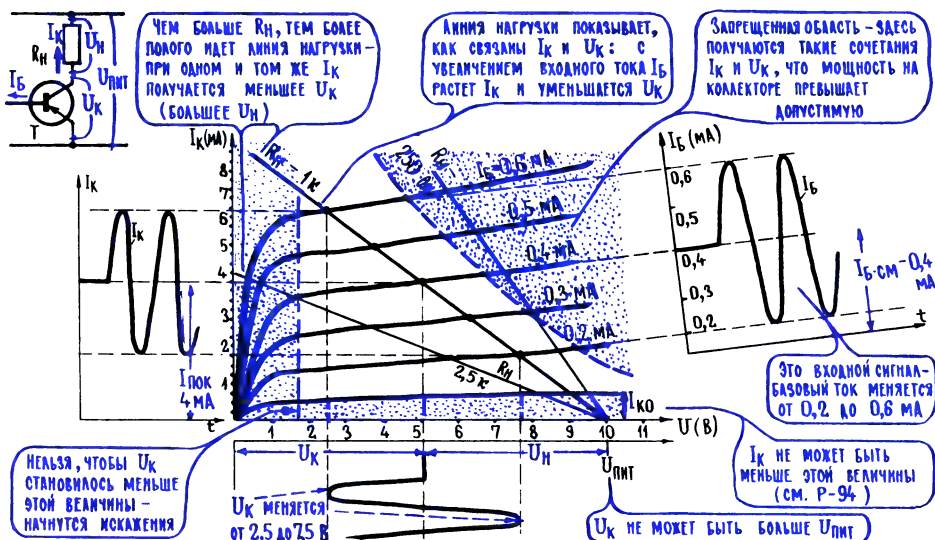 Iк
Rн
Uн
Uпит
Iб
Uк
Т
Чем больше Rн, тем более
полого идет линия нагрузки –
при одном и том же Iк
получается меньшее Uк
(большее Uн)
Линия нагрузки показывает,
как связаны Iк и Uк: с
увеличением входного тока Iб
растет Iк и уменьшается Uк
Запрещенная область – здесь
получаются такие сочетания
Iк и Uк, что мощность на
коллекторе превышает
допустимую
Iк
Iк
Iпок
4 мА
t
Iк (мА)
8
7
6
5
4
3
2
1
Rн = 1к
250
Rн –
Iб = 0,6 мА
0,5 мА
0,4 мА
0,3 мА
0,2 мА
Rн
2,5к
Iко
1 2 3 4 5 6 7 8 9 10 11 U (В)
Iб (мА)
0,6
0,5
0,4
0,3
0,2
Iб
Iб.см – 0,4
мА
t
Это входной сигнал –
базовый ток меняется
от 0,2 до 0,6 мА
Нельзя, чтобы Uк
становилось меньше
этой величины –
начнутся искажения
Uк
Uн
Uпит
Uк меняется
от 2,5 до 7,5 В
Iк не может быть
меньше этой величины
(см. Р-94)
Uк не может быть больше Uпит